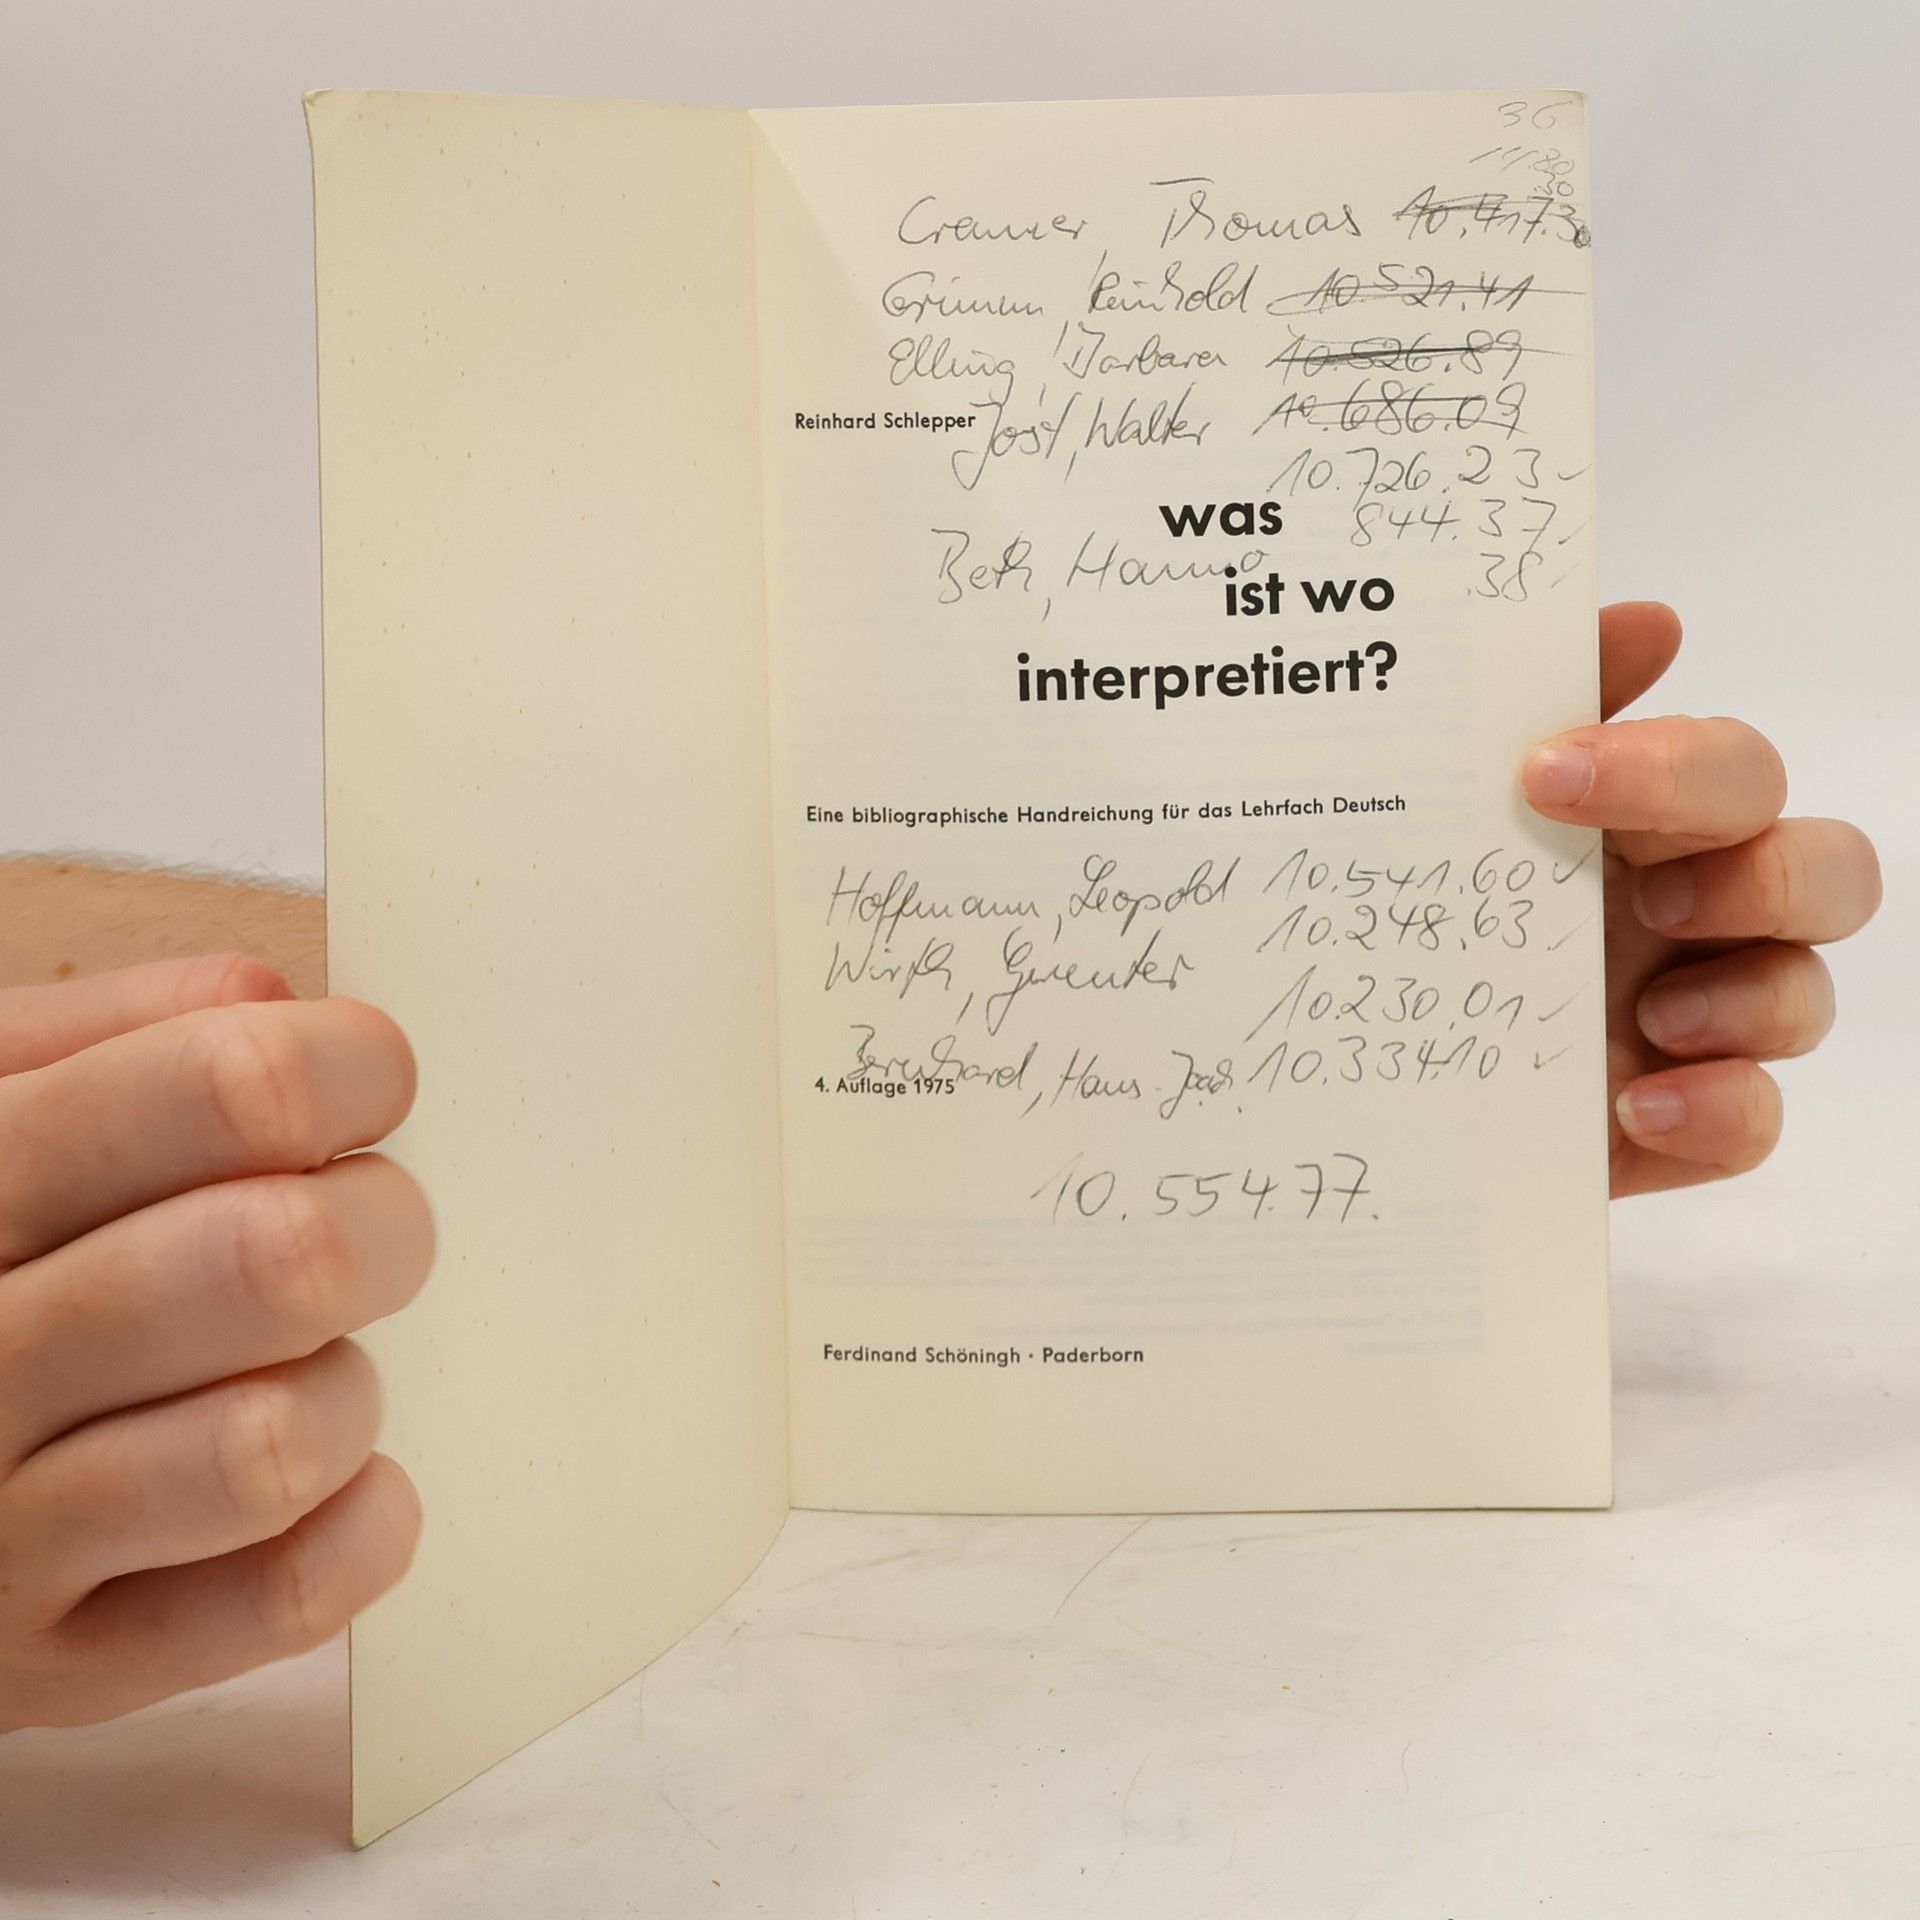 36
Cramer, Thomas 10.417.30
Grimm, Reinhold 10.521.41
Elling, Barbara 10.526.89
Reinhard Schlepper Jost, Walter 10.686.09
10.726.23
was 844.37
Beth, Hanno .38
ist wo
interpretiert?
Eine bibliographische Handreichung für das Lehrfach Deutsch
Hoffmann, Leopold 10.541.60
10.248.63
Wirth, Guenter
10.230.01
Bernhard, Hans 10.334.10
4. Auflage 1975
10.554.77.
Ferdinand Schöningh · Paderborn